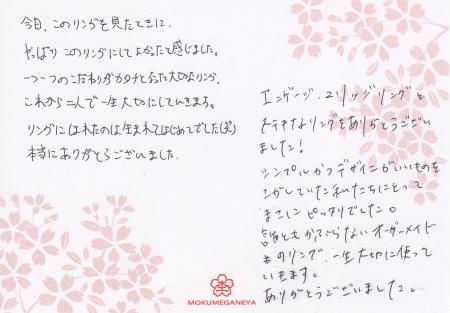 今日、このリングを見たときに、
やっぱりこのリングにしてよかったと感じました。
一つ一つのこだわりがカタチとなった大切なリング、
これから二人で一生大切にしていきます。
リングにほれたのは生まれてはじめてでした(笑)
本当にありがとうございました。
エンゲージ、マリッジリングと
ステキなリングをありがとうござい
ました!
シンプルかつデザインがいいものを
さがしていた私たちにとって
まさにピッタリでした。
誰ともかぶらないオーダーメイド
のリング、一生大切に使って
いきます。
ありがとうございました。
MOKUMEGANEYA